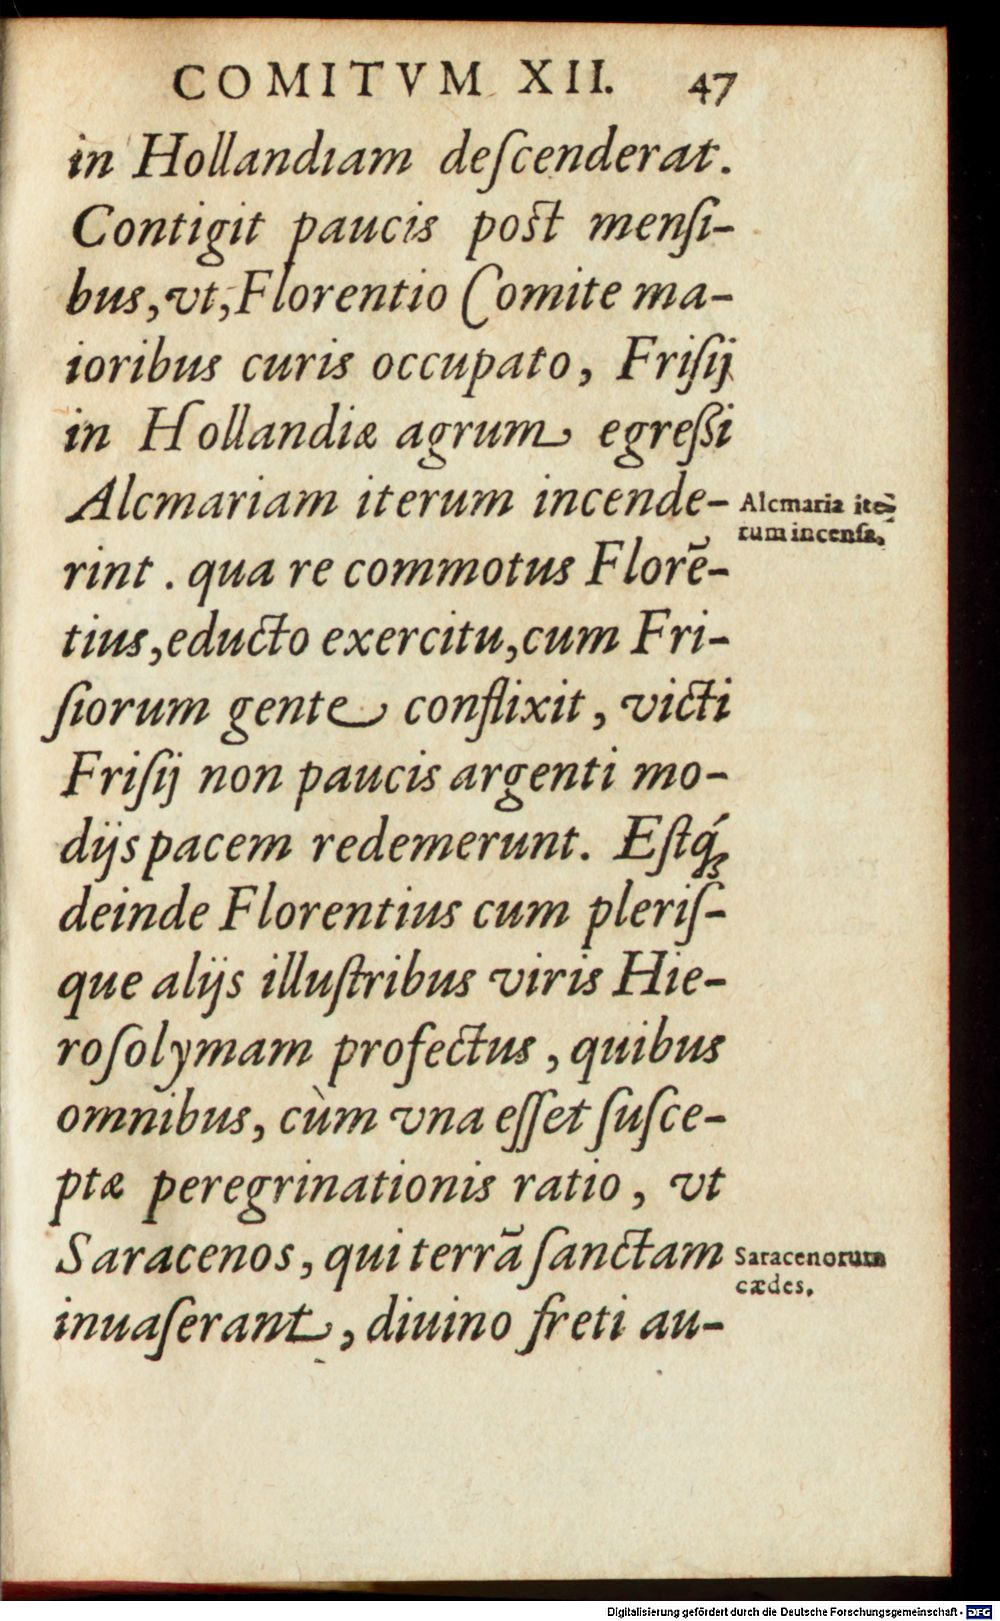 COMITVM XII. 47
in Hollandiam deſcenderat.
Contigit paucis poſt menſi-
bus, vt, Florentio Comite ma-
ioribus curis occupato, Friſij
in Hollandiæ agrum egreſſi
Alcmariam iterum incende-
Alcmaria ite-
rum incenſa.
rint. qua re commotus Florē-
tius, educto exercitu, cum Fri-
ſiorum gente conflixit, victi
Friſij non paucis argenti mo-
dijs pacem redemerunt. Eſtq́;
deinde Florentius cum pleriſ-
que alijs illuſtribus viris Hie-
roſolymam profectus, quibus
omnibus, cùm vna eſſet ſuſce-
ptæ peregrinationis ratio, vt
Saracenos, qui terrā ſanctam
Saracenorum
cædes.
inuaſerant, diuino freti au-
Digitalisierung gefördert durch die Deutsche Forschungsgemeinschaft - DFG